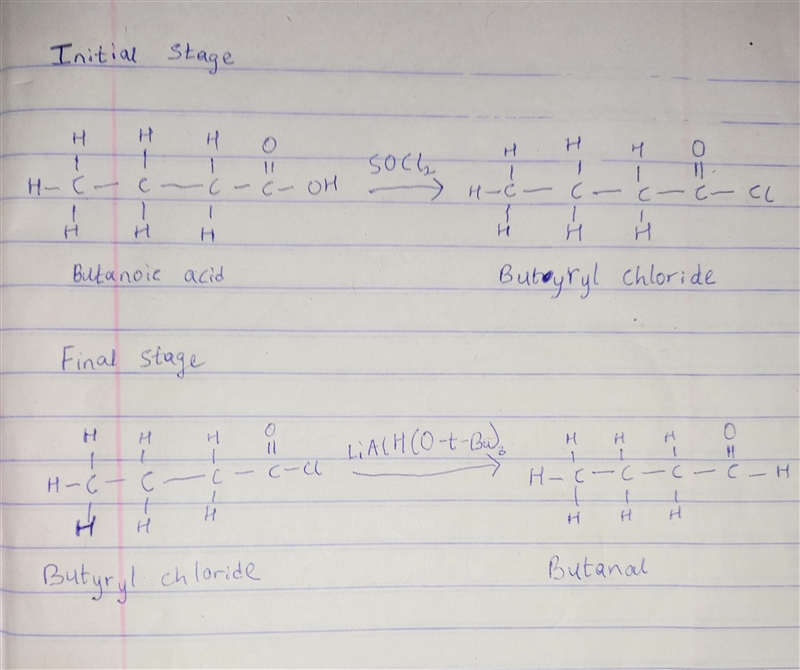 Initial Stage
H H H O
H - C - C - C - C - OH SOCl2 H - C - C - C - C - Cl
H H H
H H H O
H H H
Butanoic acid Butyryl chloride
Final Stage
H H H O LiAlH(O-t-Bu)3 H H H O
H - C - C - C - C - Cl H - C - C - C - C - H
H H H H H H
Butyryl chloride Butanal